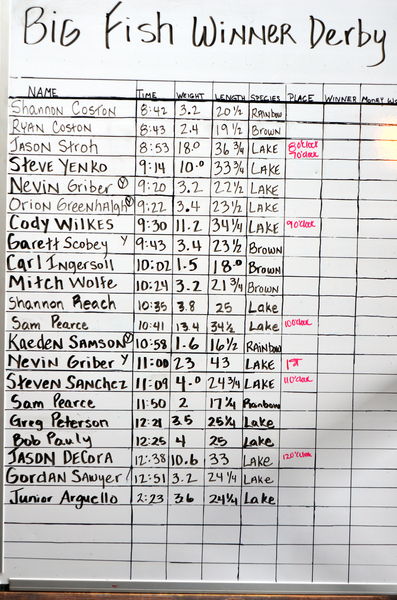 BIG FISH WINNER Derby
NAME TIME WEIGHT LENGTH SPECIES PLACE WINNER MONEY
Shannon Coston 8:42 3.2 20 1/2 Rainbow
RYAN COSTON 8:43 2.4 19 1/2 Brown
JASON Stroh 8:53 18.0 36 3/4 LAKE 8 o'clock 9 o'clock
STEVE YENKO 9:14 10.0 33 3/4 LAKE
Nevin Griber Y 9:20 3.2 22 1/2 LAKE
Orion Greenhalgh Y 9:22 3.4 23 1/2 LAKE
Cody WILKES 9:30 11.2 34 1/4 LAKE 9 o'clock
Garett Scobey Y 9:43 3.4 23 1/2 Brown
Carl Ingersoll 10:02 1.5 18.0 Brown
Mitch Wolfe 10:24 3.2 21 3/4 Brown
Shannon Reach 10:35 3.8 25 Lake
Sam Pearce 10:41 13.4 34 1/2 Lake 10 o'clock
Kaeden SAMSON Y 10:58 1.6 16 1/2 RAINBOW
Nevin Griber Y 11:00 23 43 LAKE 1st
STEVEN SANCHEZ 11:09 4.0 24 3/4 LAKE 11 o'clock
Sam Pearce 11:50 2 17 1/4 Rainbow
Greg Peterson 12:21 3.5 25 1/4 Lake
Bob Pauly 12:25 4 25 Lake
JASON DECORA 12:38 10.6 33 Lake 12 o'clock
GORDAN SAWYER 12:51 3.2 24 1/4 LAKE
Junior Arguello 2:23 3.6 24 1/4 Lake